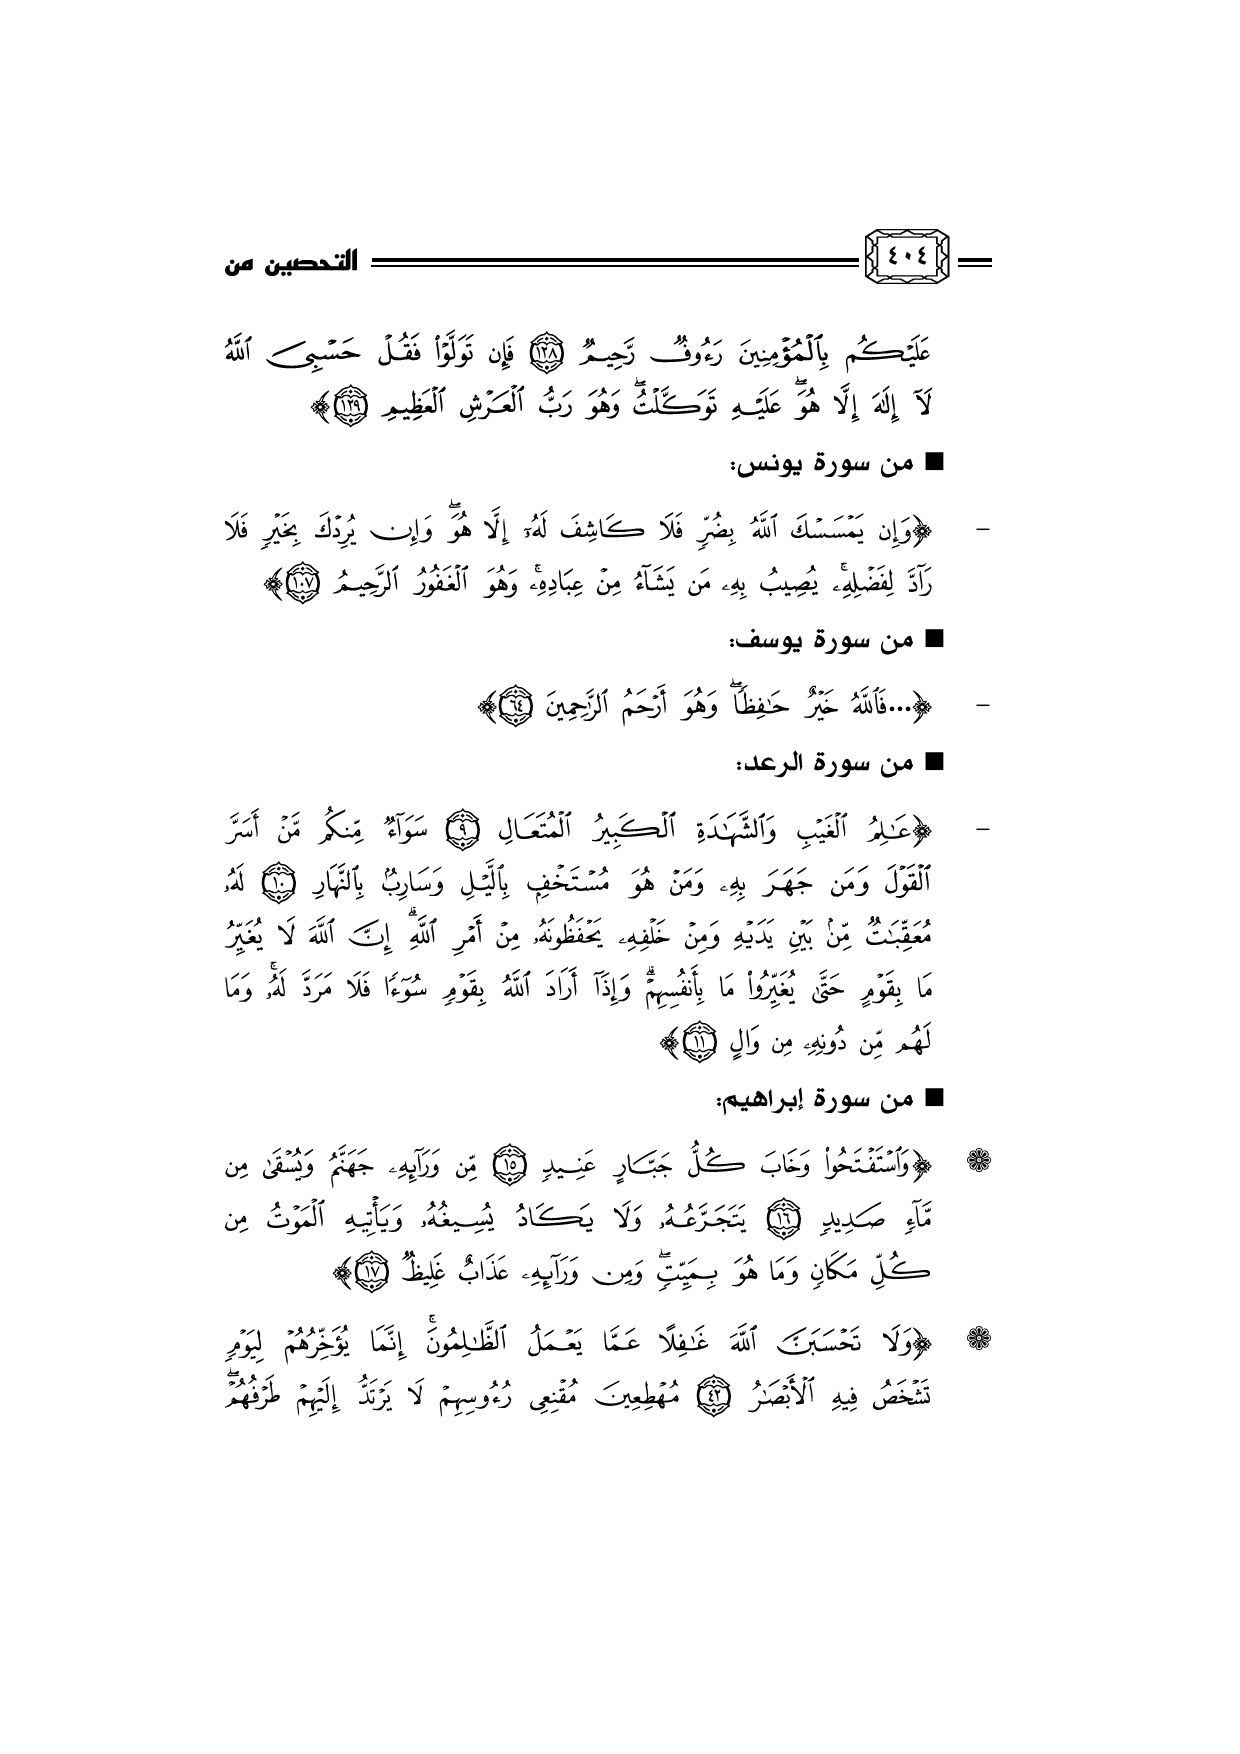 ٤٠٤ التحصين من
عَلَيْكُم بِٱلْمُؤْمِنِينَ رَءُوفٌ رَّحِيمٌ ١٢٨ فَإِن تَوَلَّوْا۟ فَقُلْ حَسْبِىَ ٱللَّهُ
لَآ إِلَٰهَ إِلَّا هُوَ ۖ عَلَيْهِ تَوَكَّلْتُ ۖ وَهُوَ رَبُّ ٱلْعَرْشِ ٱلْعَظِيمِ ١٢٩﴾
■ من سورة يونس:
– ﴿وَإِن يَمْسَسْكَ ٱللَّهُ بِضُرٍّ فَلَا كَاشِفَ لَهُۥٓ إِلَّا هُوَ ۖ وَإِن يُرِدْكَ بِخَيْرٍ فَلَا
رَآدَّ لِفَضْلِهِۦ ۚ يُصِيبُ بِهِۦ مَن يَشَآءُ مِنْ عِبَادِهِۦ ۚ وَهُوَ ٱلْغَفُورُ ٱلرَّحِيمُ ١٠٧﴾
■ من سورة يوسف:
– ﴿...فَٱللَّهُ خَيْرٌ حَٰفِظًا ۖ وَهُوَ أَرْحَمُ ٱلرَّٰحِمِينَ ٦٤﴾
■ من سورة الرعد:
– ﴿عَٰلِمُ ٱلْغَيْبِ وَٱلشَّهَٰدَةِ ٱلْكَبِيرُ ٱلْمُتَعَالِ ٩ سَوَآءٌ مِّنكُم مَّنْ أَسَرَّ
ٱلْقَوْلَ وَمَن جَهَرَ بِهِۦ وَمَنْ هُوَ مُسْتَخْفٍۭ بِٱلَّيْلِ وَسَارِبٌۢ بِٱلنَّهَارِ ١٠ لَهُۥ
مُعَقِّبَٰتٌ مِّنۢ بَيْنِ يَدَيْهِ وَمِنْ خَلْفِهِۦ يَحْفَظُونَهُۥ مِنْ أَمْرِ ٱللَّهِ ۗ إِنَّ ٱللَّهَ لَا يُغَيِّرُ
مَا بِقَوْمٍ حَتَّىٰ يُغَيِّرُوا۟ مَا بِأَنفُسِهِمْ ۗ وَإِذَآ أَرَادَ ٱللَّهُ بِقَوْمٍ سُوٓءًا فَلَا مَرَدَّ لَهُۥ ۚ وَمَا
لَهُم مِّن دُونِهِۦ مِن وَالٍ ١١﴾
■ من سورة إبراهيم:
❁ ﴿وَٱسْتَفْتَحُوا۟ وَخَابَ كُلُّ جَبَّارٍ عَنِيدٍ ١٥ مِّن وَرَآئِهِۦ جَهَنَّمُ وَيُسْقَىٰ مِن
مَّآءٍ صَدِيدٍ ١٦ يَتَجَرَّعُهُۥ وَلَا يَكَادُ يُسِيغُهُۥ وَيَأْتِيهِ ٱلْمَوْتُ مِن
كُلِّ مَكَانٍ وَمَا هُوَ بِمَيِّتٍ ۖ وَمِن وَرَآئِهِۦ عَذَابٌ غَلِيظٌ ١٧﴾
❁ ﴿وَلَا تَحْسَبَنَّ ٱللَّهَ غَٰفِلًا عَمَّا يَعْمَلُ ٱلظَّٰلِمُونَ ۚ إِنَّمَا يُؤَخِّرُهُمْ لِيَوْمٍ
تَشْخَصُ فِيهِ ٱلْأَبْصَٰرُ ٤٢ مُهْطِعِينَ مُقْنِعِى رُءُوسِهِمْ لَا يَرْتَدُّ إِلَيْهِمْ طَرْفُهُمْ ۖ